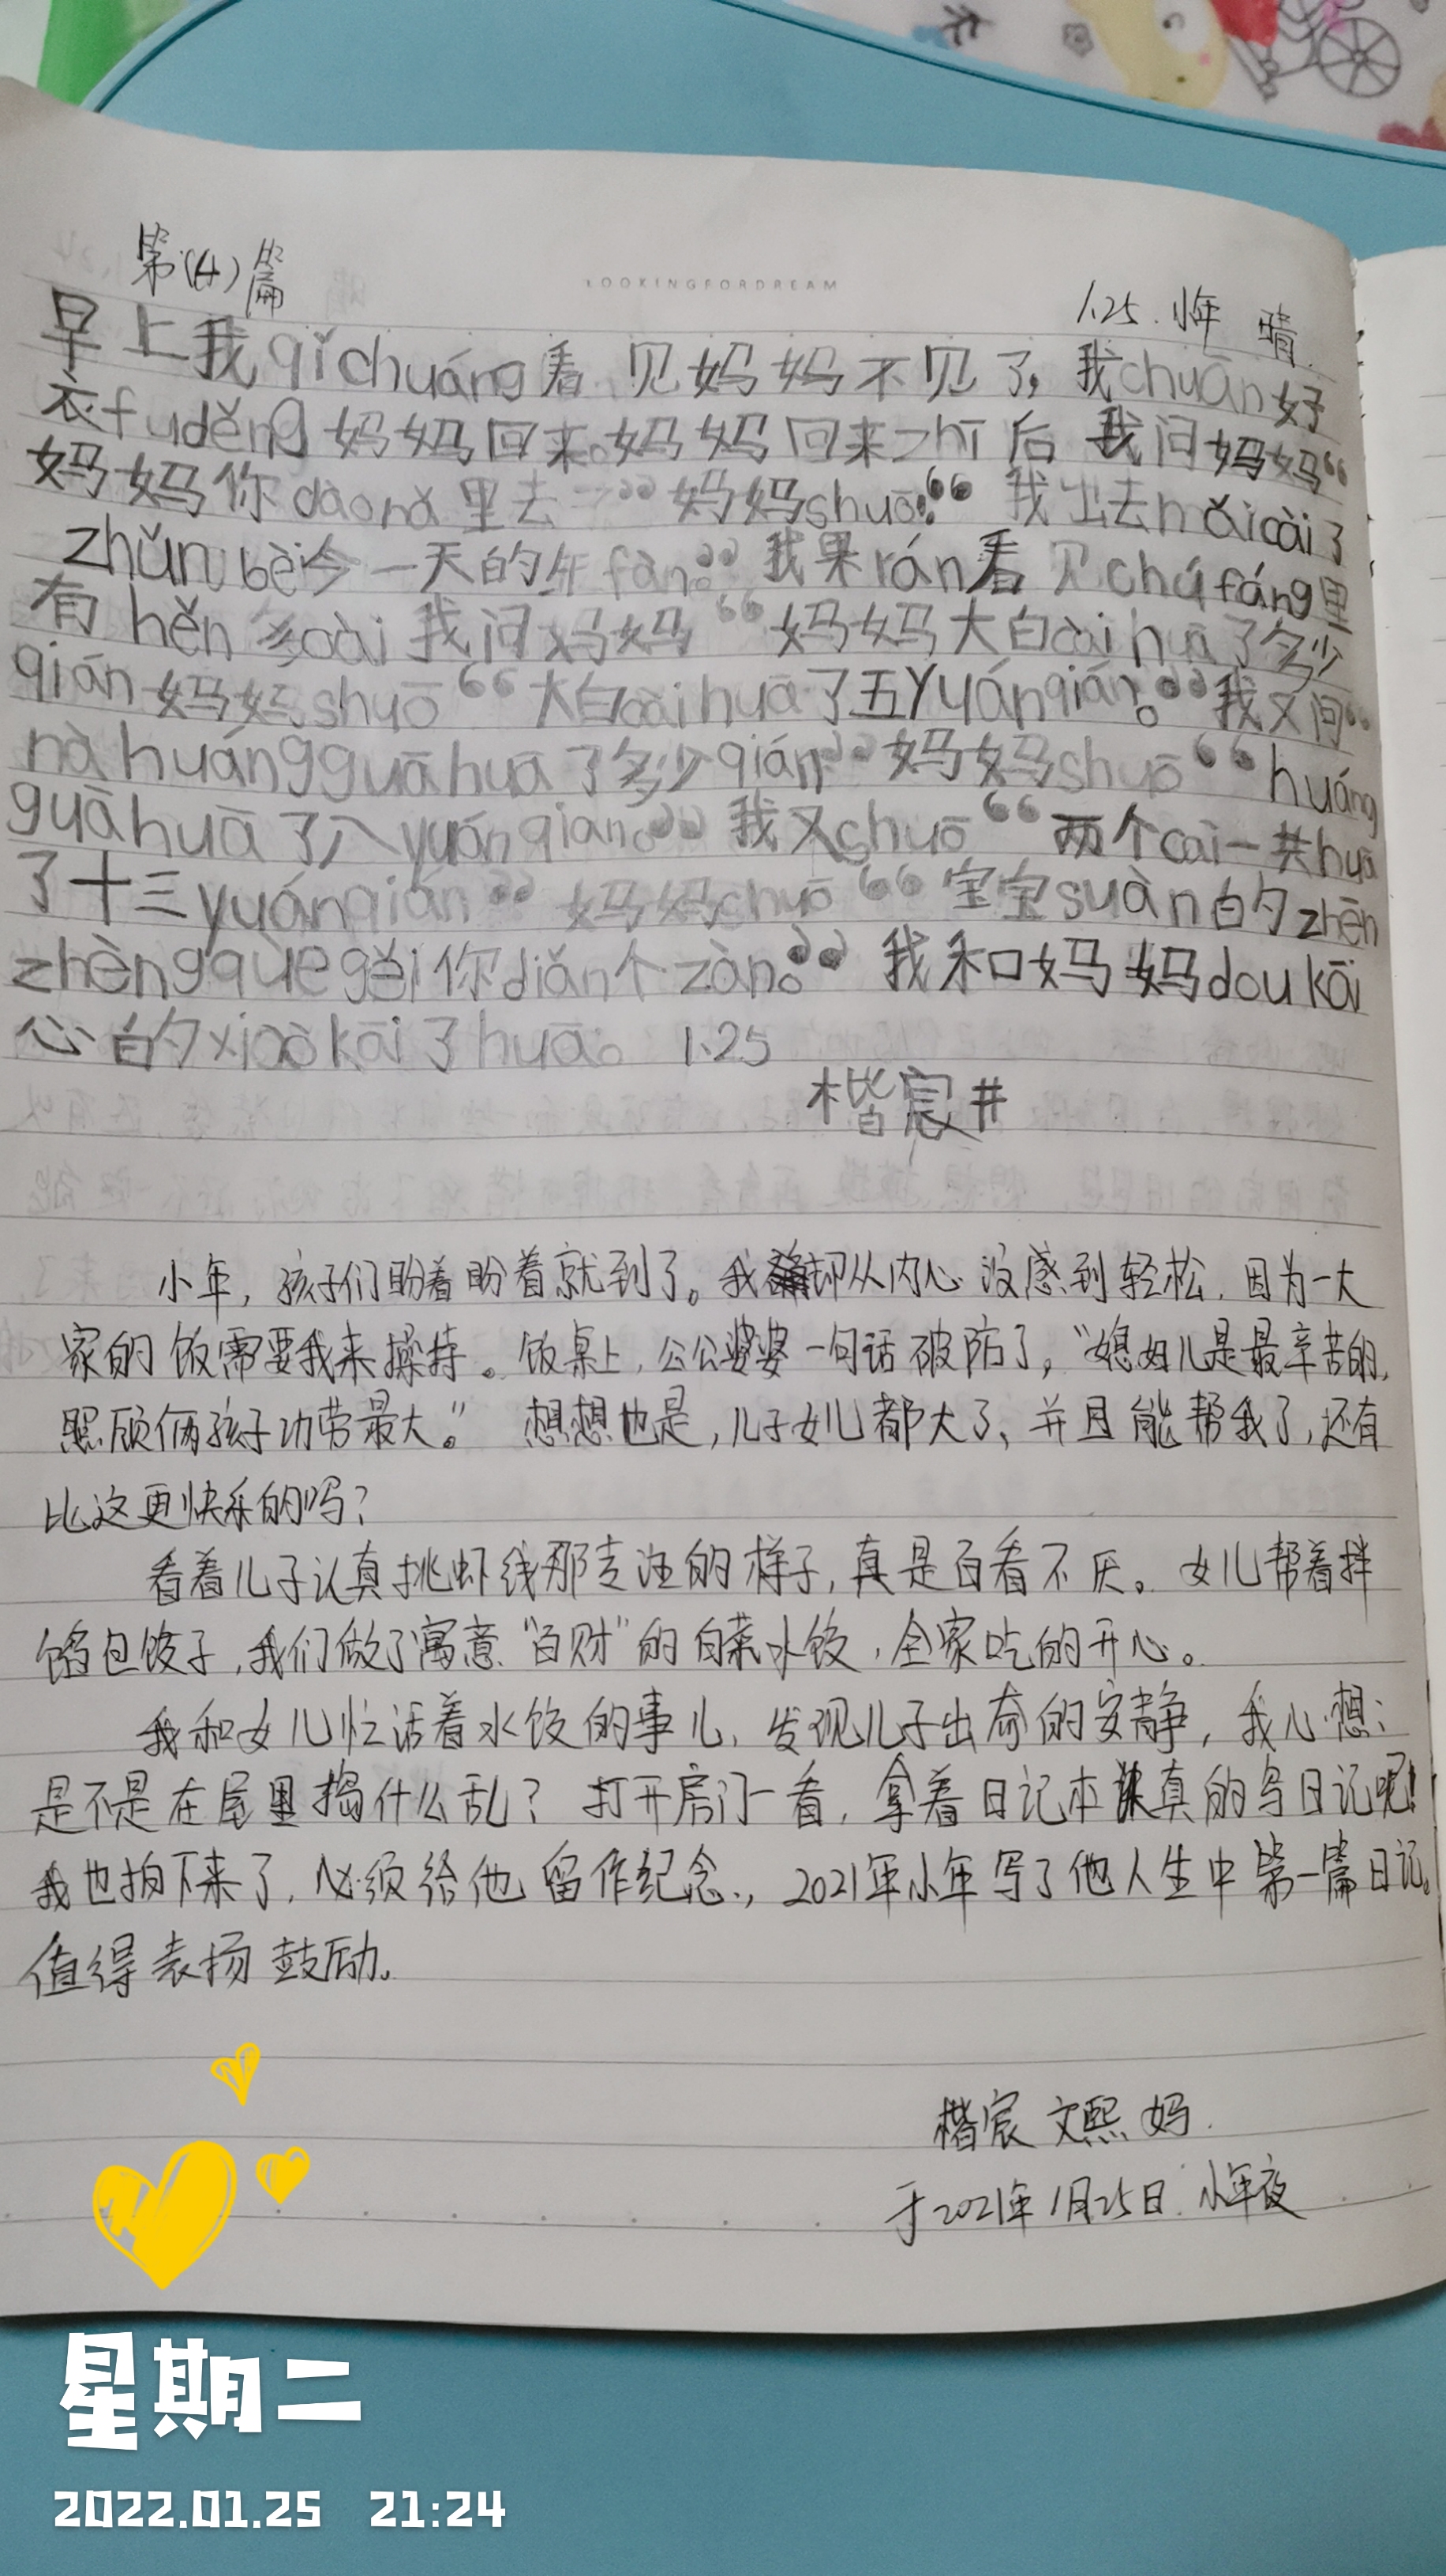 第(4)篇
LOOKINGFORDREAM
1.25. 小年 晴.
早上我qǐchuáng看见妈妈不见了,我chuān好
衣fuděng妈妈回来。妈妈回来zhī后我问妈妈“
妈妈你dàonǎ里去了”妈妈shuō:“我出去mǎicài了
zhǔnbèi今一天的午fàn。”我果rán看见chúfáng里
有hěn多cài我问妈妈“妈妈大白càihuā了多少
qián妈妈shuō“大白càihuā了五yuánqián。”我又问“
nàhuángguāhuā了多少qián”妈妈shuō“huáng
guāhuā了八yuánqián。”我又shuō“两个cài一共huā
了十三yuánqián”妈妈shuō“宝宝suàn的zhēn
zhèngquègěi你diǎn个zàn。”我和妈妈doukāi
心的xiàokāi了huā。 1.25
楷宸#
小年,孩子们盼着盼着就到了。我却从内心没感到轻松,因为一大
家的饭需要我来操持。饭桌上,公公婆婆一句话破防了,“媳妇儿是最辛苦的,
照顾俩孩子功劳最大。” 想想也是,儿子女儿都大了、并且能帮我了,还有
比这更快乐的吗?
看着儿子认真挑虾线那专注的样子,真是百看不厌。女儿帮着拌
馅包饺子,我们做了寓意“百财”的白菜水饺,全家吃的开心。
我和女儿忙活着水饺的事儿,发现儿子出奇的安静,我心想:
是不是在屋里捣什么乱?打开房门一看,拿着日记本认真的写日记呢!
我也拍下来了,必须给他留作纪念,2021年小年写了他人生中第一篇日记。
值得表扬鼓励。
楷宸 文熙 妈.
于2021年1月25日.小年夜
星期二
2022.01.25 21:24